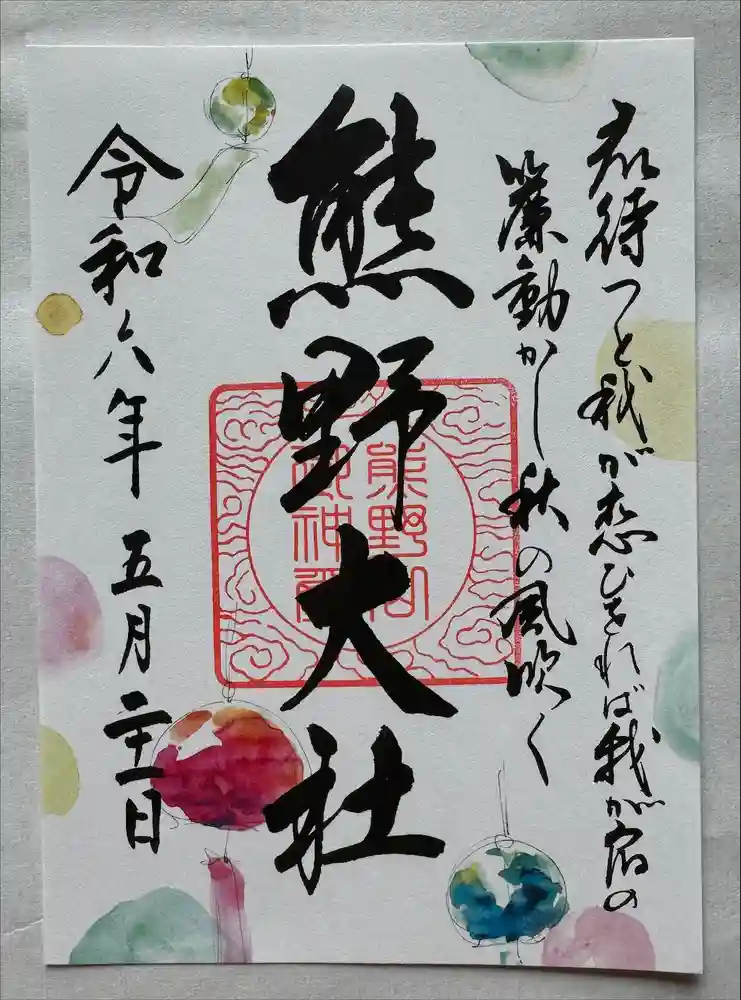 君待つと我が恋ひをれば我が宿の
簾動かし秋の風吹く
熊野大社
熊野山
御神
令和六年 五月二十一日